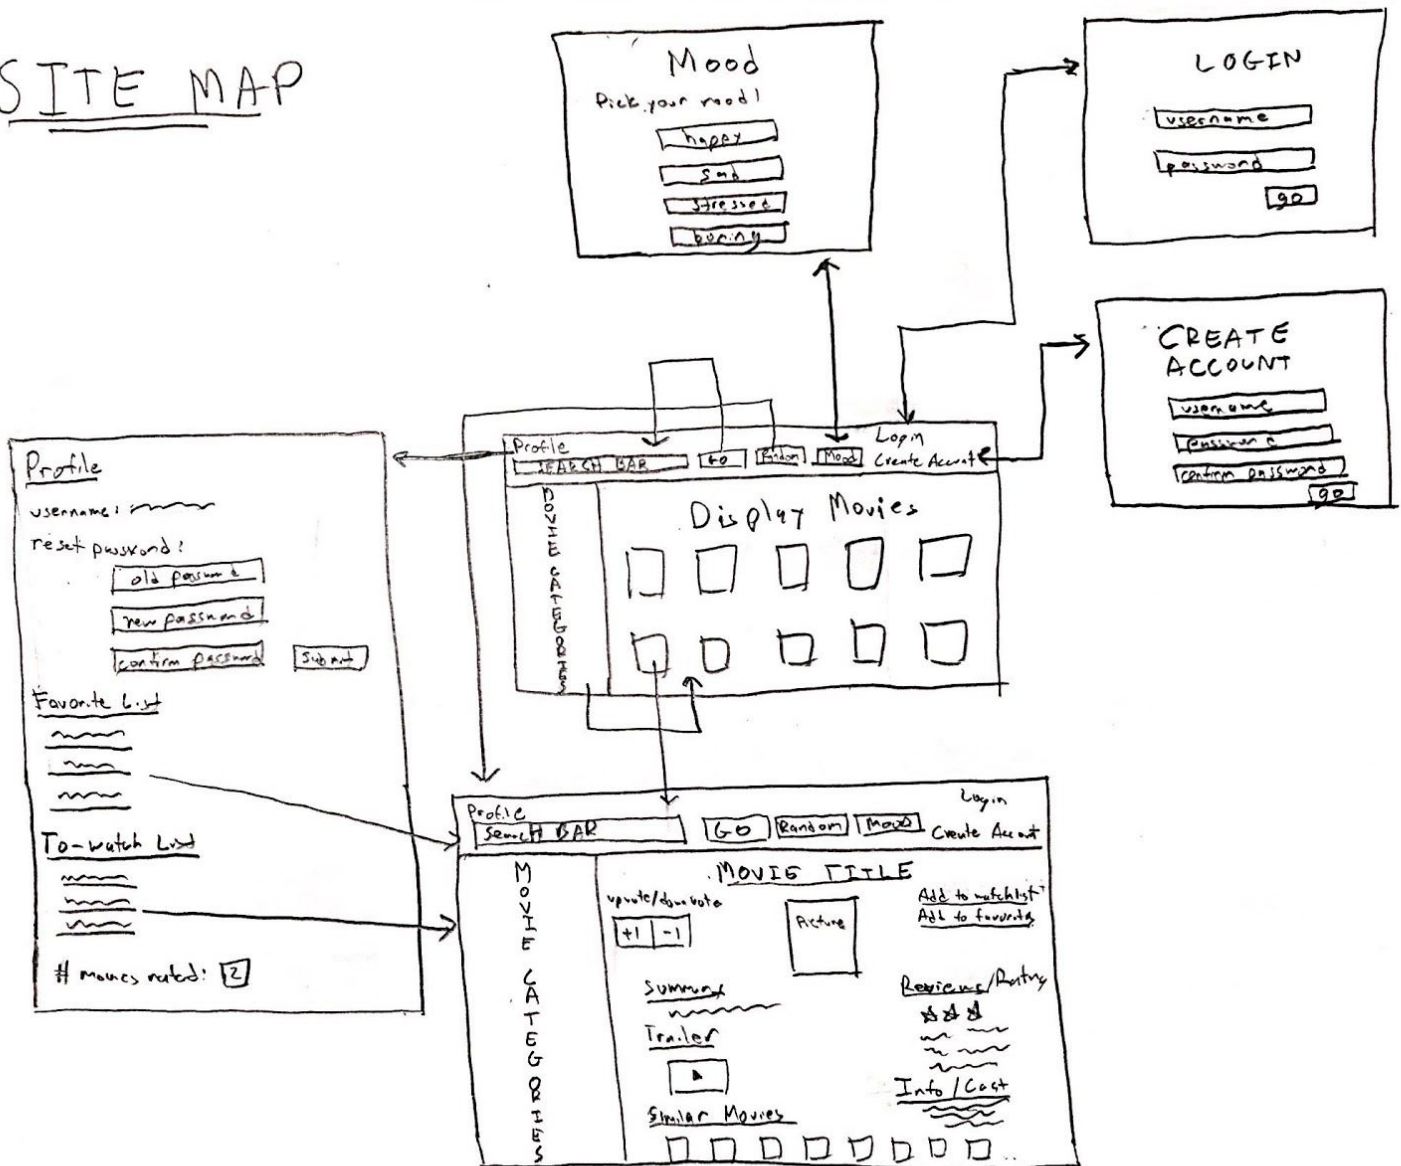 SITE MAP
Mood
Pick your mood!
happy
sad
stressed
boring
LOGIN
username
password
go
CREATE
ACCOUNT
username
password
confirm password
go
Profile
username:
reset password:
old password
new password
confirm password
Submit
Favorite List
To-watch List
# movies rated: 2
Profile
Login
SEARCH BAR GO Random Mood Create Account
MOVIE CATEGORIES
Display Movies
Profile
Login
Search BAR GO Random Mood Create Account
MOVIE CATEGORIES
MOVIE TITLE
upvote/downvote
+1 -1
Picture
Add to watchlist
Add to favorites
Summary
Trailer
Similar Movies
Reviews/Rating
Info/Cast